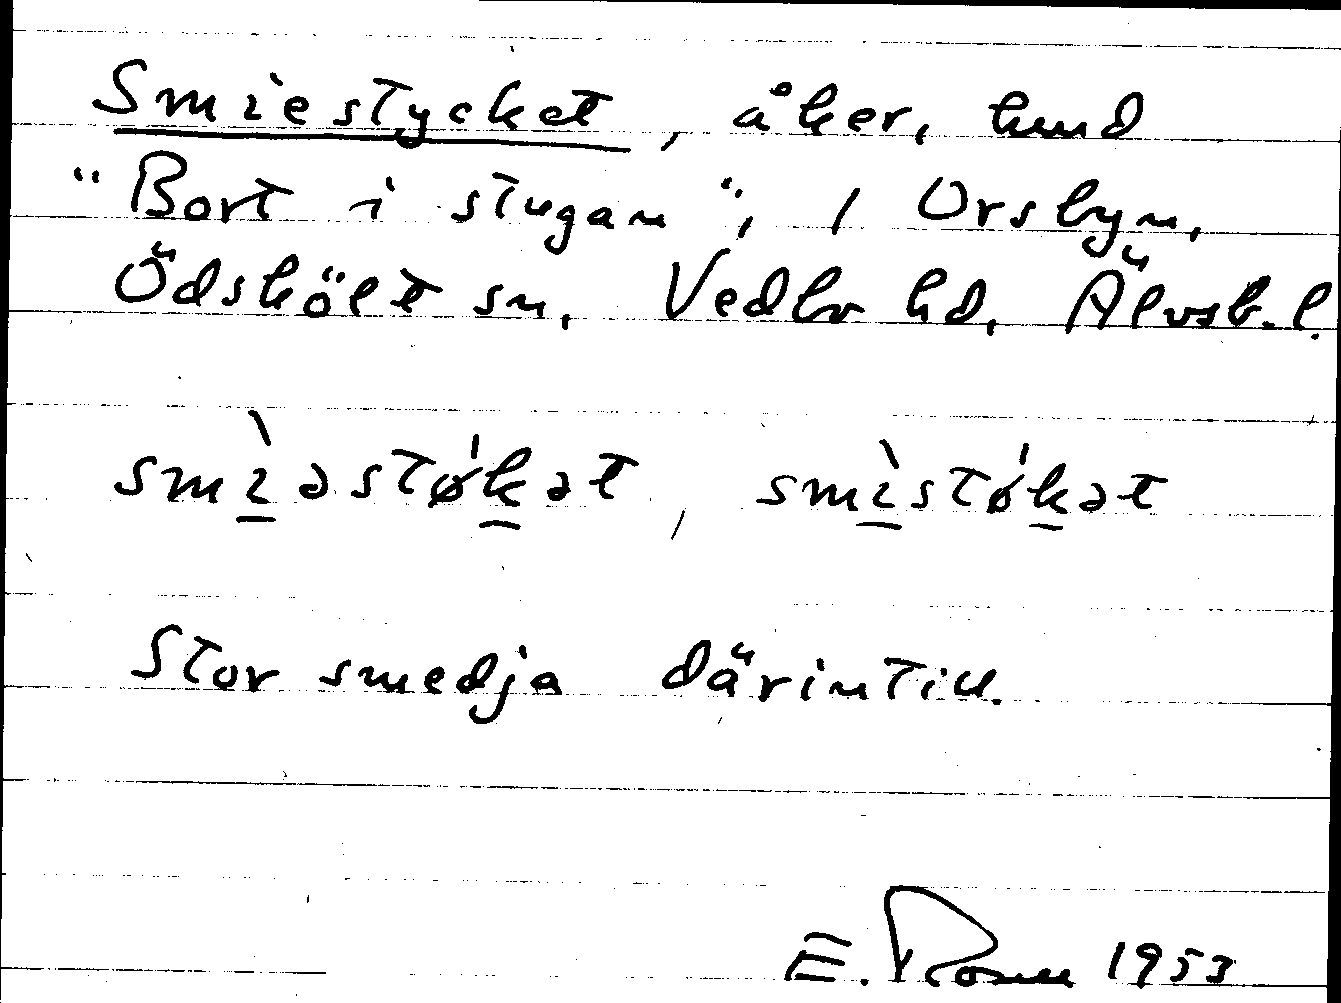 Smiestycket, åker, hmd
"Bort i stugan", 1 Ursbyn,
Ödskölt sn, Vedbo hd, Älvsb. l.
smı̀əstǿkət, smı̀stǿkət
Stor smedja därintill.
E. 1953